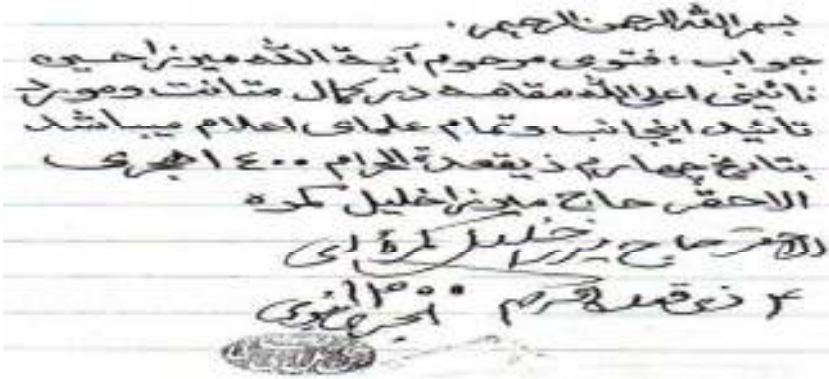 بسم الله الرحمن الرحیم.
جواب: فتوی مرحوم آیة الله میرزا حسین
نائینی اعلی الله مقامه در کمال متانت و مورد
تائید اینجانب و تمام علمای اعلام میباشد
بتاریخ چهارم ذیقعدة الحرام ۱۴۰۰ هجری
الاحقر حاج میرزا خلیل کمره
الاحقر حاج میرزا خلیل کمره ای
۴ ذی قعدة ۱۴۰۰